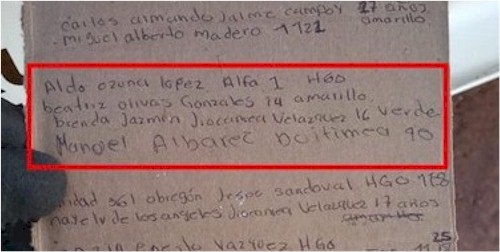 carlos armando Jaime campoy 27 años
amarillo.
miguel alberto madero 1122
Aldo ozuna lopez Alfa 1 HGO
beatriz olivas Gonzales 14 amarillo
brenda Jazmin Jiocamea Velazquez 16 verde
Manoel Albarez boitimea 90
nidad 561 obregon Jesus sandoval HGO 128
nayely de los angeles Jiocamea Velazquez 17 años
25
Vazquez HGO